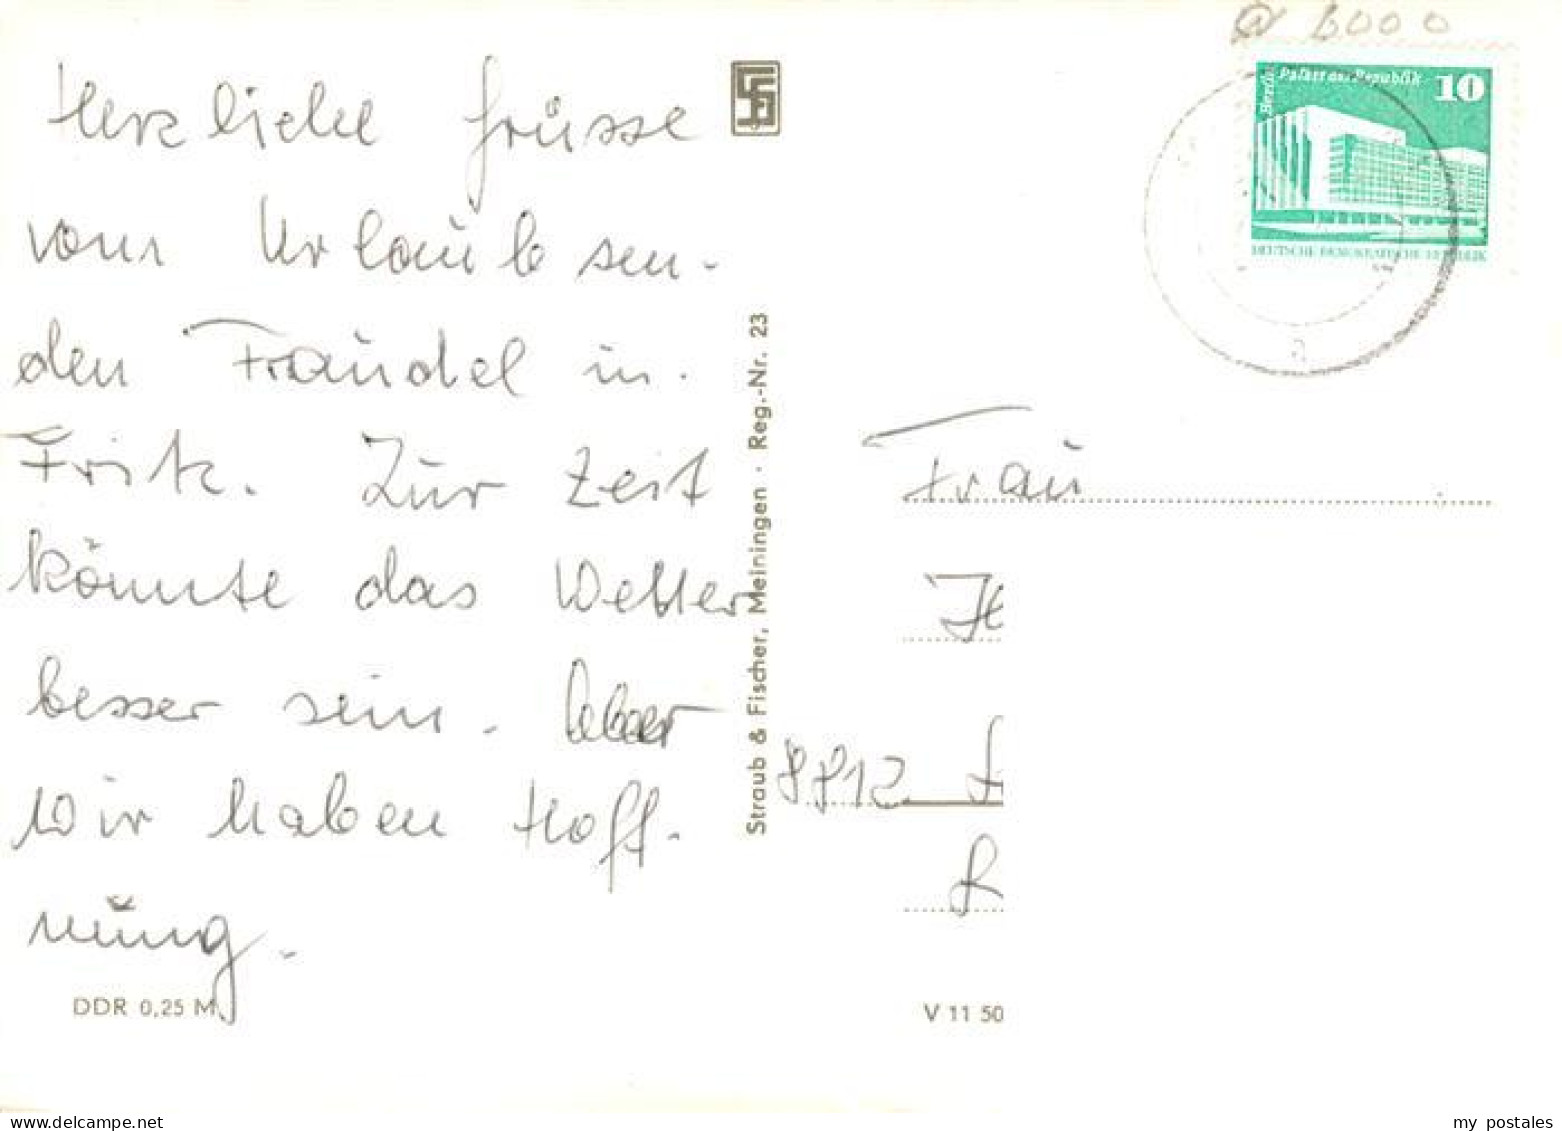 Herzliche Grüsse
vom Urlaub sen-
den Traudel und
Fritz. Zur Zeit
könnte das Wetter
besser sein. Aber
wir haben Hoff-
nung.
DDR 0,25 M
Straub & Fischer, Meiningen · Reg.-Nr. 23
@ 6000
Berlin Palast der Republik 10
DEUTSCHE DEMOKRATISCHE REPUBLIK
a
Frau
8812
V 11 50
my postales